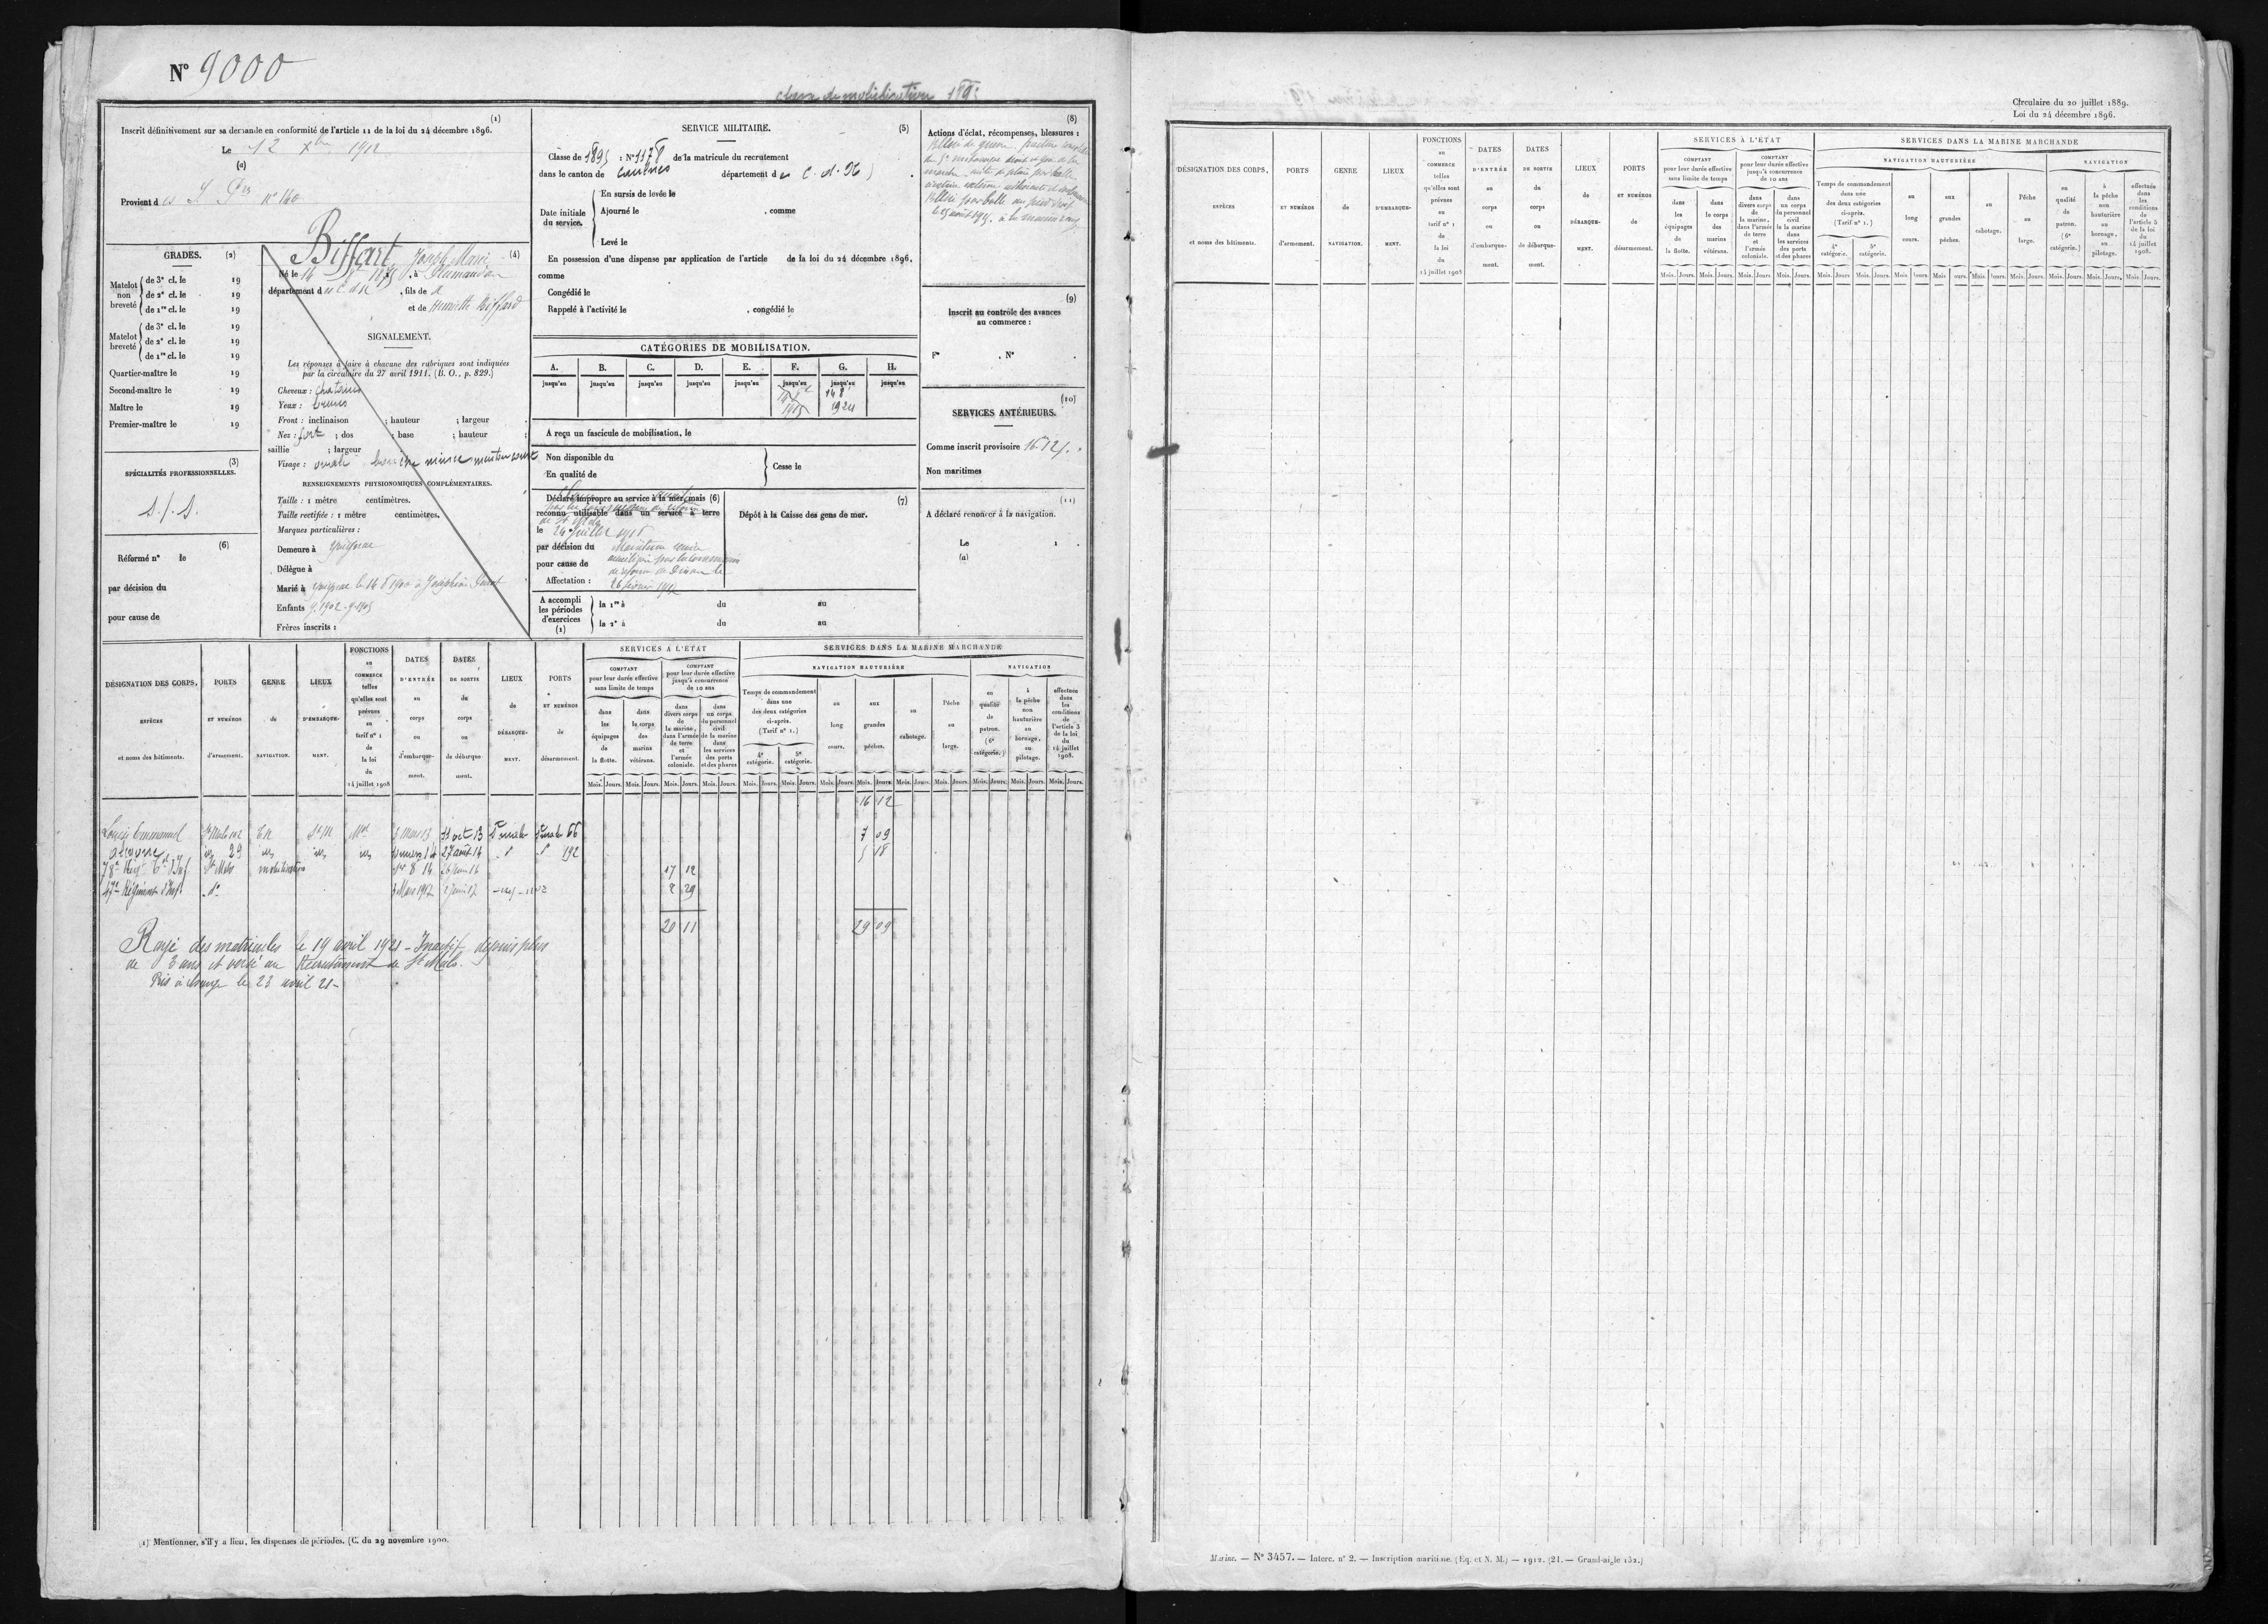 N° 9000
classe de mobilisation 189
(1)
Inscrit définitivement sur sa demande en conformité de l'article 11 de la loi du 24 décembre 1896.
Le 12 Xbre 1912
(a)
Provient des I Pres n° 140
GRADES. (2)
Matelot non breveté
de 3e cl. le 19
de 2e cl. le 19
de 1re cl. le 19
Matelot breveté
de 3e cl. le 19
de 2e cl. le 19
de 1re cl. le 19
Quartier-maître le 19
Second-maître le 19
Maître le 19
Premier-maître le 19
(3)
SPÉCIALITÉS PROFESSIONNELLES.
S/S.
(6)
Réformé n° le
par décision du
pour cause de
Biffart, Joseph Marie (4)
Né le 16 à Plumaudan
département d , fils de
et de Henriette Biffard
SIGNALEMENT.
Les réponses à faire à chacune des rubriques sont indiquées
par la circulaire du 27 avril 1911. (B. O., p. 829.)
Cheveux : chatains
Yeux : bruns
Front : inclinaison ; hauteur ; largeur
Nez : fort ; dos ; base ; hauteur ;
saillie ; largeur
Visage : ovale
RENSEIGNEMENTS PHYSIONOMIQUES COMPLÉMENTAIRES.
Taille : 1 mètre centimètres.
Taille rectifiée : 1 mètre centimètres.
Marques particulières :
Demeure à Guignac
Délègue à
Marié à
Enfants g. 1902 - g. 1905
Frères inscrits :
SERVICE MILITAIRE. (5)
Classe de 1895 : N° 1178 de la matricule du recrutement
dans le canton de Caulnes département des C. d. N.
Date initiale du service.
En sursis de levée le
Ajourné le , comme
Levé le
En possession d'une dispense par application de l'article de la loi du 24 décembre 1896,
comme
Congédié le
Rappelé à l'activité le , congédié le
CATÉGORIES DE MOBILISATION.
A. B. C. D. E. F. G. H.
jusqu'au jusqu'au jusqu'au jusqu'au jusqu'au jusqu'au jusqu'au jusqu'au
1924
A reçu un fascicule de mobilisation, le
Non disponible du
En qualité de
Cesse le
Déclaré impropre au service à la mer, mais (6)
reconnu utilisable dans un service à terre
le 24 Juillet
par décision du Maintenu service
pour cause de auxiliaire par la commission
de réforme de Dinan le
Affectation : 26 février 1917
(7)
Dépôt à la Caisse des gens de mer.
A accompli les périodes d'exercices (1)
la 1re à du au
la 2e à du au
(8)
Actions d'éclat, récompenses, blessures :
Blessé de guerre
(9)
Inscrit au contrôle des avances
au commerce :
F° . N° .
(10)
SERVICES ANTÉRIEURS.
Comme inscrit provisoire 16.12j.
Non maritimes
(11)
A déclaré renoncer à la navigation.
Le 1 .
(a)
DÉSIGNATION DES CORPS, ESPÈCES et noms des bâtiments.
PORTS ET NUMÉROS d'armement.
GENRE de NAVIGATION.
LIEUX D'EMBARQUEMENT.
FONCTIONS au COMMERCE telles qu'elles sont prévues au tarif n° 1 de la loi du 14 juillet 1908
DATES D'ENTRÉE au corps ou d'embarquement.
DATES DE SORTIE du corps ou de débarquement.
LIEUX de DÉBARQUEMENT.
PORTS ET NUMÉROS de désarmement.
SERVICES À L'ÉTAT
COMPTANT pour leur durée effective sans limite de temps
dans les équipages de la flotte.
dans le corps des marins vétérans.
COMPTANT pour leur durée effective jusqu'à concurrence de 10 ans
dans divers corps de la marine, dans l'armée de terre et l'armée coloniale.
dans un corps du personnel civil de la marine dans les services des ports et des phares
SERVICES DANS LA MARINE MARCHANDE
NAVIGATION HAUTURIÈRE
Temps de commandement dans une des deux catégories ci-après. (Tarif n° 1.)
4e catégorie. 5e catégorie.
au long cours.
aux grandes pêches.
au cabotage.
Pêche au large.
NAVIGATION
en qualité de patron. (6e catégorie.)
à la pêche non hauturière au bornage, au pilotage.
effectuée dans les conditions de l'article 5 de la loi du 14 juillet 1908.
Mois. Jours.
16 12
Louise Emmanuel St Malo TN St M Mot 3 Mars 13 11 oct 13 St malo St malo 66 7 09
29 27 août 14 192 5 18
78e Régt Tal d'Inf St Malo mobilisation 8 14 17 12
47e Régiment d'Inf. d° 3 Mars 1917 2 29
20 11 29 09
Rayé des matricules le 19 avril 1921 - Inactif depuis plus
de 3 ans et versé au Recrutement de St Malo.
Pris à charge le 23 avril 21 -
(1) Mentionner, s'il y a lieu, les dispenses de périodes. (C. du 29 novembre 1900.
Circulaire du 20 juillet 1889.
Loi du 24 décembre 1896.
DÉSIGNATION DES CORPS, ESPÈCES et noms des bâtiments.
PORTS ET NUMÉROS d'armement.
GENRE de NAVIGATION.
LIEUX D'EMBARQUEMENT.
FONCTIONS au COMMERCE telles qu'elles sont prévues au tarif n° 1 de la loi du 14 juillet 1908
DATES D'ENTRÉE au corps ou d'embarquement.
DATES DE SORTIE du corps ou de débarquement.
LIEUX de DÉBARQUEMENT.
PORTS ET NUMÉROS de désarmement.
SERVICES À L'ÉTAT
COMPTANT pour leur durée effective sans limite de temps
dans les équipages de la flotte.
dans le corps des marins vétérans.
COMPTANT pour leur durée effective jusqu'à concurrence de 10 ans
dans divers corps de la marine, dans l'armée de terre et l'armée coloniale.
dans un corps du personnel civil de la marine dans les services des ports et des phares
SERVICES DANS LA MARINE MARCHANDE
NAVIGATION HAUTURIÈRE
Temps de commandement dans une des deux catégories ci-après. (Tarif n° 1.)
4e catégorie. 5e catégorie.
au long cours.
aux grandes pêches.
au cabotage.
Pêche au large.
NAVIGATION
en qualité de patron. (6e catégorie.)
à la pêche non hauturière au bornage, au pilotage.
effectuée dans les conditions de l'article 5 de la loi du 14 juillet 1908.
Mois. Jours.
Marine. — N° 3457. — Interc. n° 2. — Inscription maritime. (Éq. et N. M.) — 1912. (21. — Grand-aigle 152.)